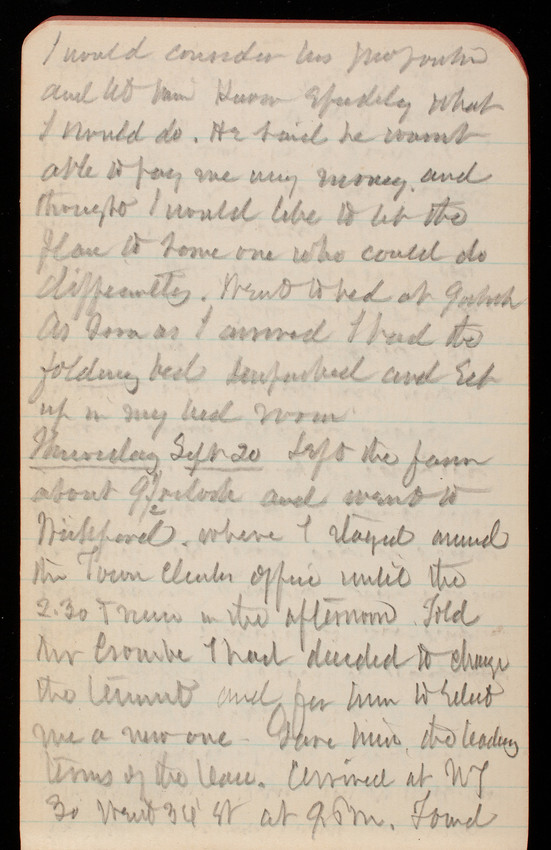 I would consider his proposition
and let him know speedily what
I would do. He said he wasnt
able to pay me my money and
thought I would like to let the
place to some one who could do
differently. Went to bed at 9 oclock
As soon as I arrived I had the
folding bed unpacked and set
up in my bed room
Thursday Sept 20 Left the farm
about 9 1/2 oclock and went to
Wickford. where I stayed around
the Town Clerks office until the
2.30 Train in the afternoon. Told
Mr I had decided to change
the tenant and for him to select
me a new one - Gave him the leading
terms of the lease. Arrived at NY
30 West 34 St at 9 P m. Found